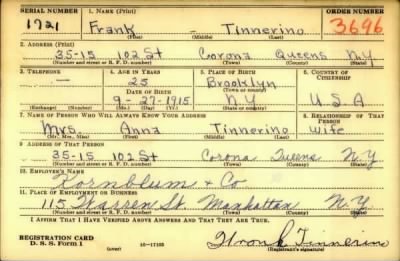 SERIAL NUMBER 1. NAME (Print) ORDER NUMBER
1721 Frank - Tinnerino 3696
(First) (Middle) (Last)
2. ADDRESS (Print)
35-15 102 St Corona Queens N.Y
(Number and street or R. F. D. number) (Town) (County) (State)
3. TELEPHONE 4. AGE IN YEARS 5. PLACE OF BIRTH 6. COUNTRY OF CITIZENSHIP
- 25 Brooklyn
DATE OF BIRTH (Town or county)
9-27-1915 N Y U S A
(Exchange) (Number) (Mo.) (Day) (Yr.) (State or country)
7. NAME OF PERSON WHO WILL ALWAYS KNOW YOUR ADDRESS 8. RELATIONSHIP OF THAT PERSON
Mrs. Anna Tinnerino Wife
(Mr., Mrs., Miss) (First) (Middle) (Last)
9. ADDRESS OF THAT PERSON
35-15 102 St Corona Queens N.Y
(Number and street or R. F. D. number) (Town) (County) (State)
10. EMPLOYER'S NAME
Kornblum + Co
11. PLACE OF EMPLOYMENT OR BUSINESS
115 Warren St. Manhattan N Y
(Number and street or R. F. D. number) (Town) (County) (State)
I AFFIRM THAT I HAVE VERIFIED ABOVE ANSWERS AND THAT THEY ARE TRUE.
REGISTRATION CARD
D. S. S. Form 1 (over) 16-17105 Frank Tinnerino
(Registrant's signature)